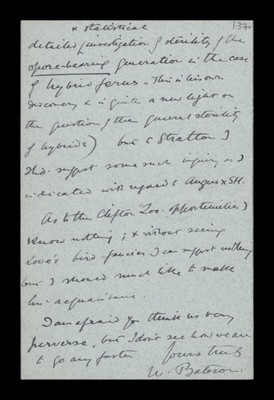 & statistical
137
detailed investigation of sterility of the
spore-bearing generation in the case
of hybrid ferns. This is his own
discovery & is quite a new light on
the question of the general sterility
of hybrids) but to Stratton I
shd. suggest some such inquiry as I
indicated with regard to Angus x SH.
As to the Clifton Zoo. opportunities I
know nothing; & without seeing
bird fancier I can suggest nothing
but I should much like to make
his acquaintance.
I am afraid you think us very
perverse, but I don't see how we are
to go any faster
Yours truly
W. Bateson.